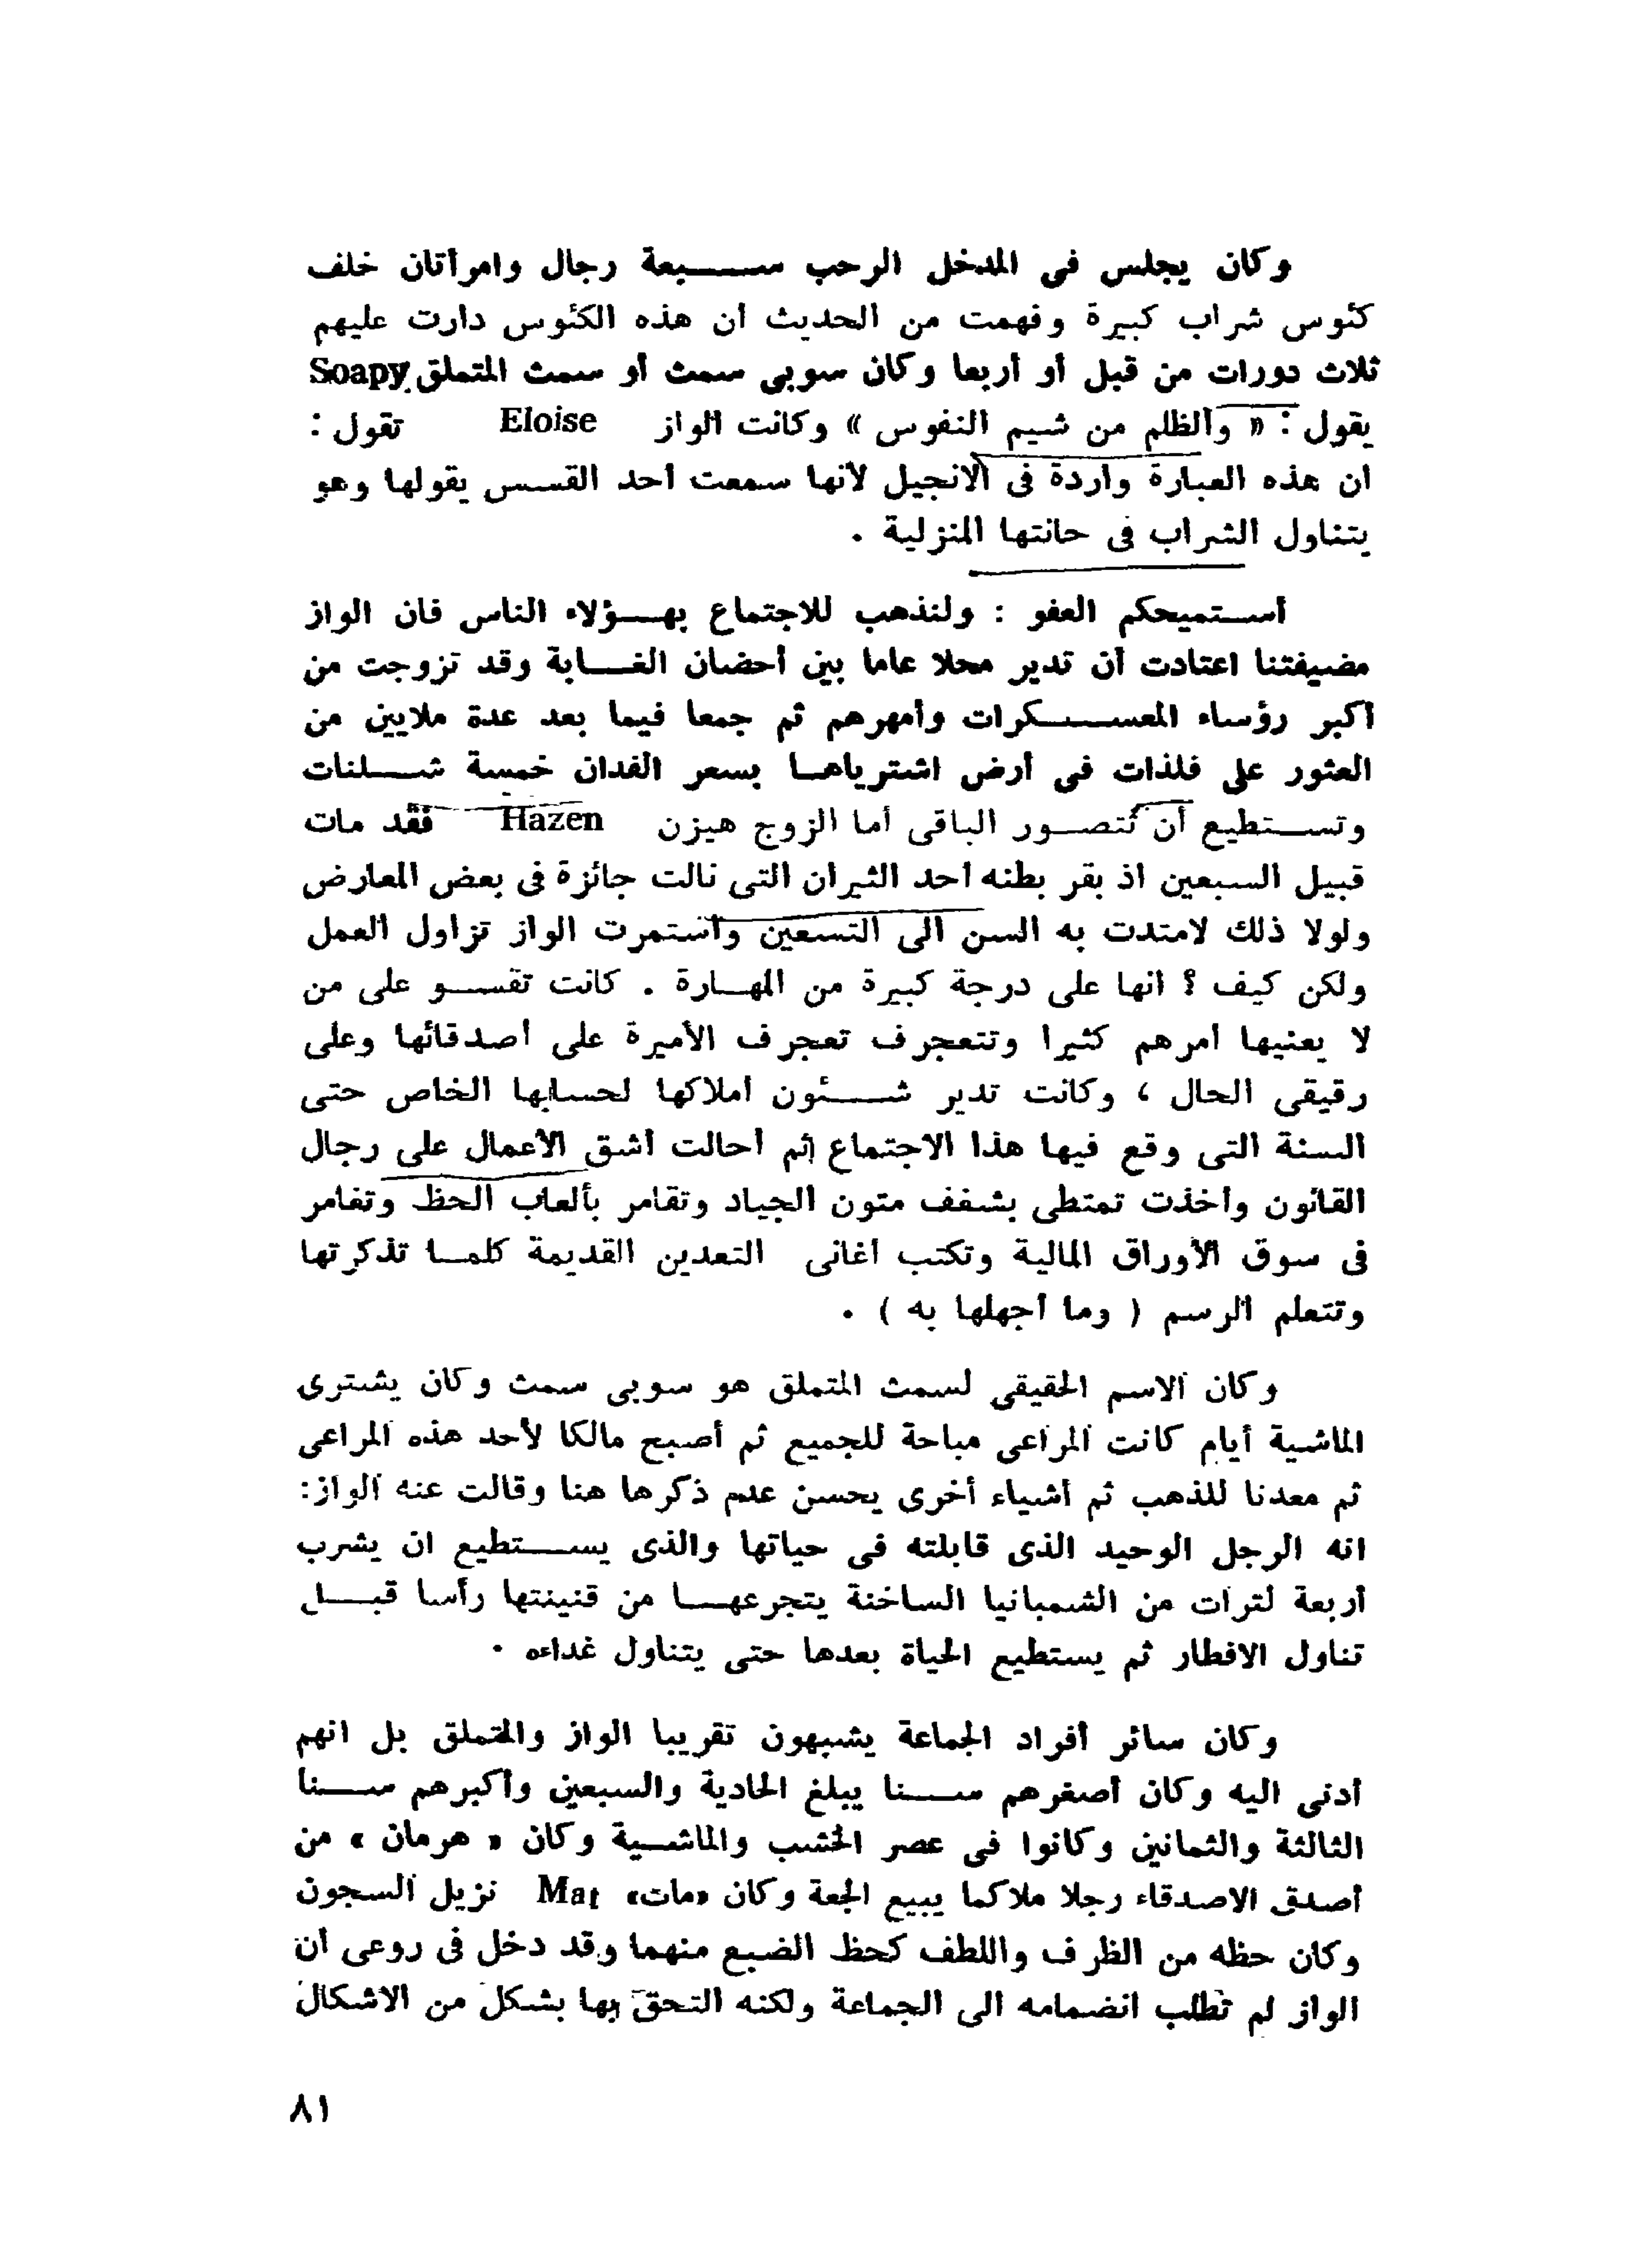 وكان يجلس فى المدخل الرحب سبعة رجال وامرأتان خلف
كئوس شراب كبيرة وفهمت من الحديث أن هذه الكئوس دارت عليهم
ثلاث دورات من قبل أو أربعا وكان سوبى سمث أو سمث المتملق Soapy
يقول : « والظلم من شيم النفوس » وكانت الواز Eloise تقول :
ان هذه العبارة واردة فى الانجيل لأنها سمعت أحد القسس يقولها وهو
يتناول الشراب فى حانتها المنزلية .
أستميحكم العفو : ولنذهب للاجتماع بهؤلاء الناس فان الواز
مضيفتنا اعتادت أن تدير محلا عاما بين أحضان الغابة وقد تزوجت من
أكبر رؤساء المعسكرات وأمهرهم ثم جمعا فيما بعد عدة ملايين من
العثور على فلذات فى أرض اشترياها بسعر الفدان خمسة شلنات
وتستطيع أن تتصور الباقى أما الزوج هيزن Hazen فقد مات
قبيل السبعين اذ بقر بطنه أحد الثيران التى نالت جائزة فى بعض المعارض
ولولا ذلك لامتدت به السن الى التسعين واستمرت الواز تزاول العمل
ولكن كيف ؟ انها على درجة كبيرة من المهارة . كانت تقسو على من
لا يعنيها أمرهم كثيرا وتتعجرف تعجرف الأميرة على أصدقائها وعلى
رقيقى الحال ، وكانت تدير شئون أملاكها لحسابها الخاص حتى
السنة التى وقع فيها هذا الاجتماع ثم أحالت أشق الأعمال على رجال
القانون وأخذت تمتطى بشغف متون الجياد وتقامر بألعاب الحظ وتغامر
فى سوق الأوراق المالية وتكتب أغانى التعدين القديمة كلما تذكرتها
وتتعلم الرسم ( وما أجهلها به ) .
وكان الاسم الحقيقى لسمث المتملق هو سوبى سمث وكان يشترى
الماشية أيام كانت المراعى مباحة للجميع ثم أصبح مالكا لأحد هذه المراعى
ثم معدنا للذهب ثم أشياء أخرى يحسن عدم ذكرها هنا وقالت عنه الواز:
انه الرجل الوحيد الذى قابلته فى حياتها والذى يستطيع ان يشرب
أربعة لترات من الشمبانيا الساخنة يتجرعها من قنينتها رأسا قبل
تناول الافطار ثم يستطيع الحياة بعدها حتى يتناول غداءه .
وكان سائر أفراد الجماعة يشبهون تقريبا الواز والمتملق بل انهم
أدنى اليه وكان أصغرهم سنا يبلغ الحادية والسبعين وأكبرهم سنا
الثالثة والثمانين وكانوا فى عصر الخشب والماشية وكان « هرمان » من
أصدق الاصدقاء رجلا ملاكما يبيع الجعة وكان «مات» Mat نزيل السجون
وكان حظه من الظرف واللطف كحظ الضبع منهما وقد دخل فى روعى أن
الواز لم تطلب انضمامه الى الجماعة ولكنه التحق بها بشكل من الاشكال
٨١